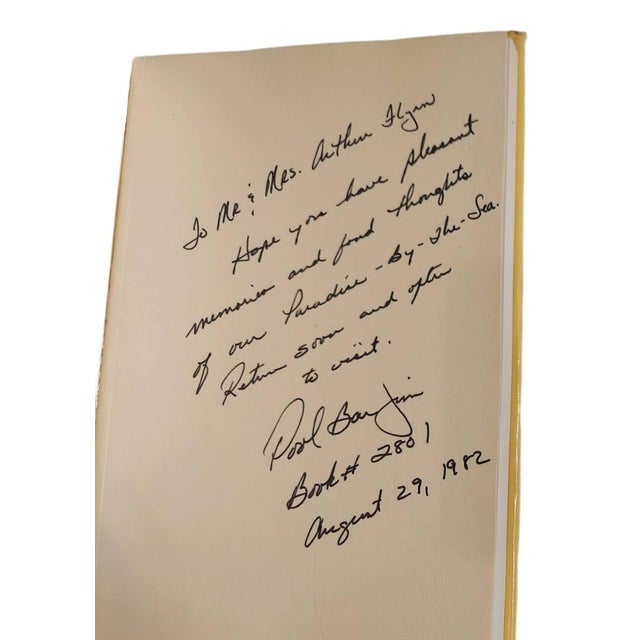 To Mr & Mrs. Arthur Flynn
Hope you have pleasant
memories and fond thoughts
of our Paradise-By-The-Sea.
Return soon and often
to visit.
Pool Bar Jim
Book# 2801
August 29, 1982